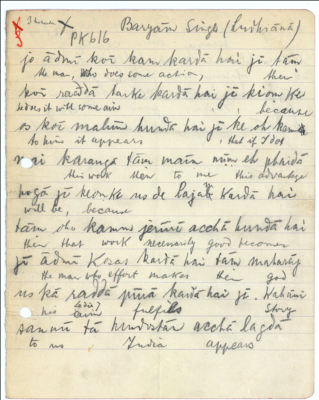 3
PK616 Baryām Singh (Ludhiānā)
jo ādmī koī kam kardā hai jī tām
the man, who does some action, then
koī rāddā karke kardā hai jī kionke
because
os koī malūm hundā hai jī ke eh kam
to him it appears, that if I do
mai karanga tām main nūn eh phaidā
this work then to me this advantage
hogā jī kionke us de lajaī kardā hai
will be, because
tām oho kamm jerūrī acchā hundā hai
then that work necessarily good becomes
jī ādmī kosas kardā hai tam mahārāj
the man who effort makes then god
us kā rāddā pūrā kardā hai jī. Kahānī
his fulfils Story
sannū tā hindustān acchā lagdā
to us India appears